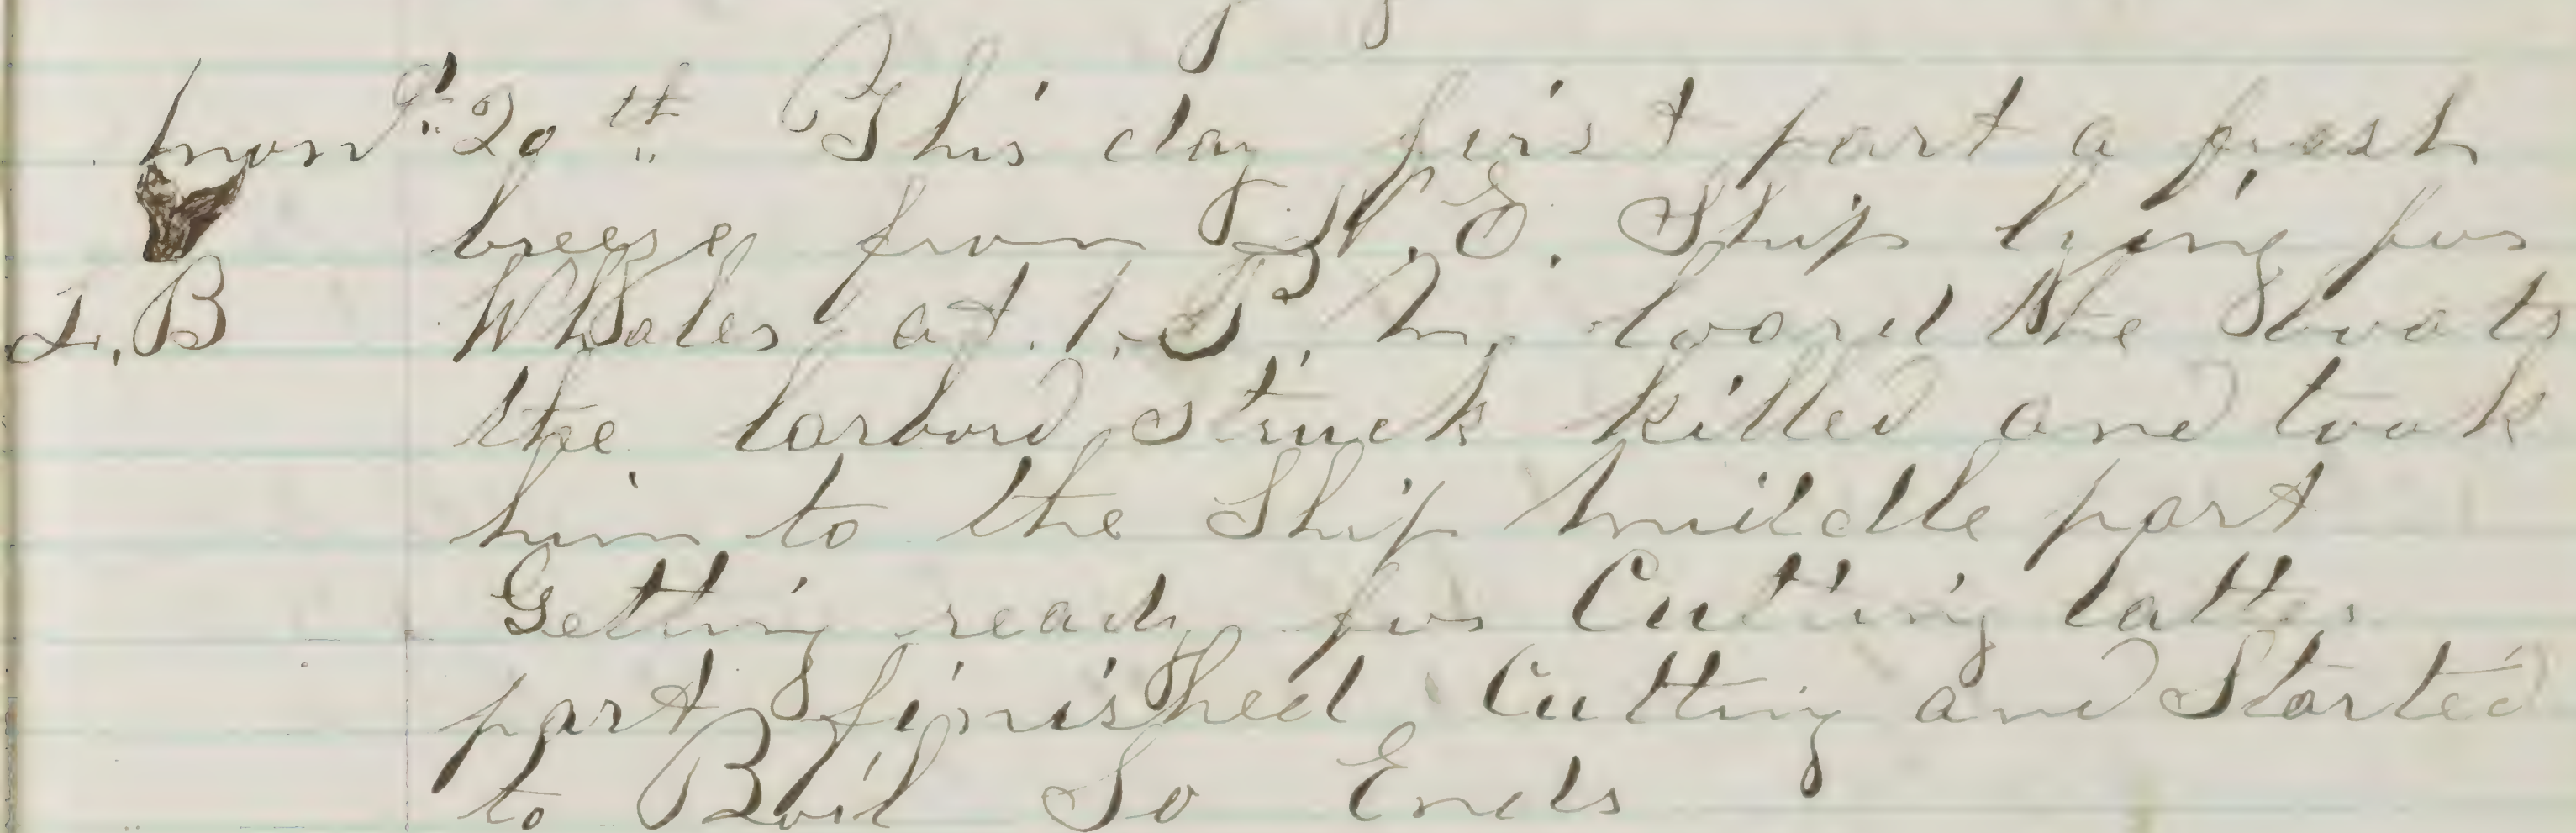 Mond 20th This day first part a fresh
breeze from N. E. Ship lying for
L. B Whales at 1. P. M. loard the boats
the larbord struck killed and took
him to the Ship middle part
Getting ready for Cutting latter
part finished Cutting and Started
to Boil So Ends